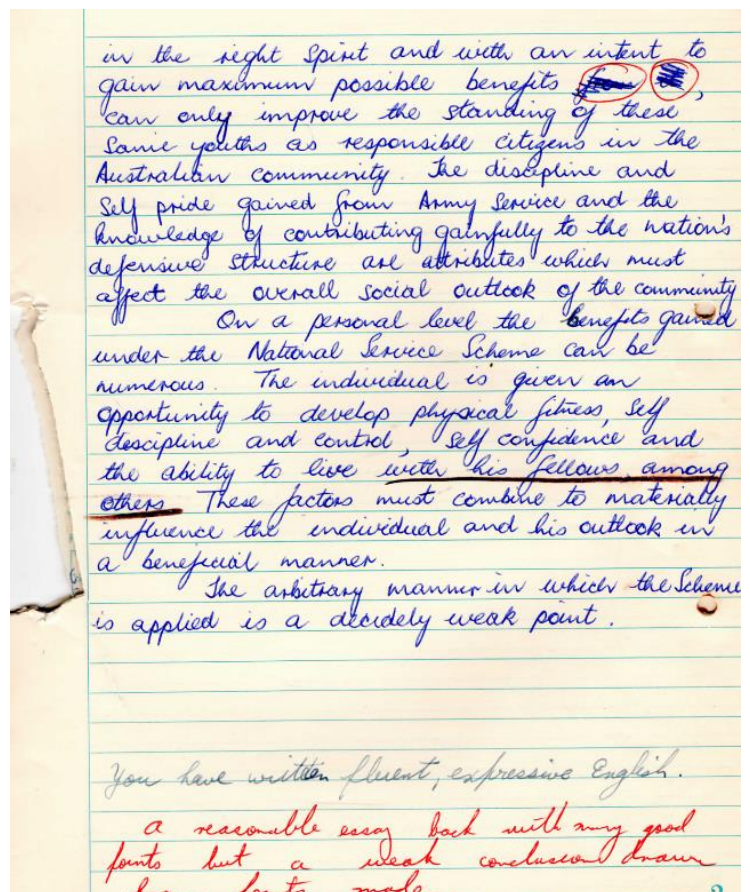 in the right spirit and with an intent to
gain maximum possible benefits ,
can only improve the standing of these
same youths as responsible citizens in the
Australian community. The discipline and
self pride gained from Army Service and the
knowledge of contributing gainfully to the nation's
defensive structure are attributes which must
affect the overall social outlook of the community
On a personal level the benefits gained
under the National Service Scheme can be
numerous. The individual is given an
opportunity to develop physical fitness, self
descipline and control, self confidence and
the ability to live with his fellows, among
others. These factors must combine to materially
influence the individual and his outlook in
a beneficial manner.
The arbitrary manner in which the Scheme
is applied is a decidely weak point.
You have written fluent, expressive English.
a reasonable essay back with many good
points but a weak conclusion drawn
made